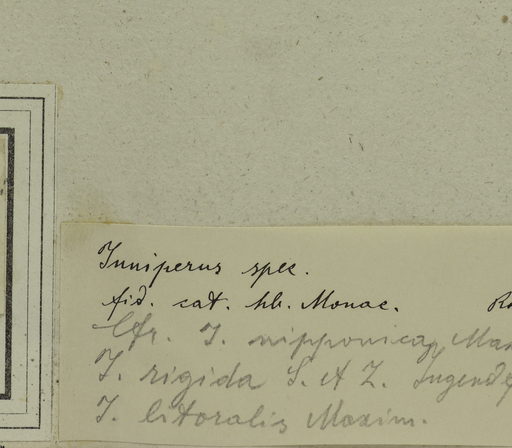 Juniperus spec.
fid. cat. hb. Monac.
Cfr. J. nipponica, Max
J. rigida S. et Z. Jugendf
J. litoralis Maxim.